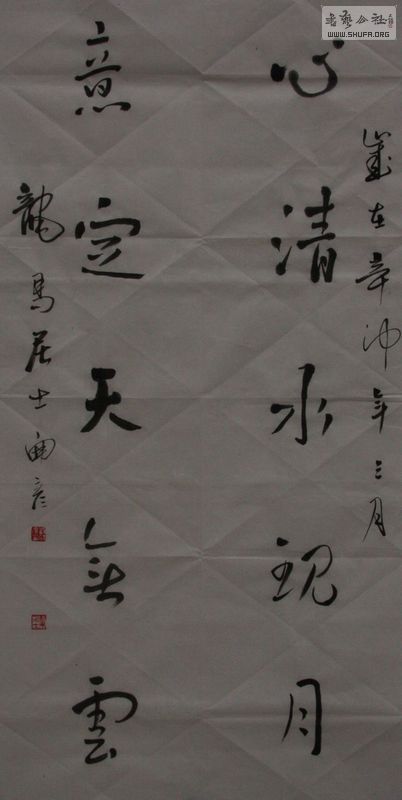 歲在辛卯年三月
心清水現月
意定天無雲
龍馬居士
書艺公社
WWW.SHUFA.ORG